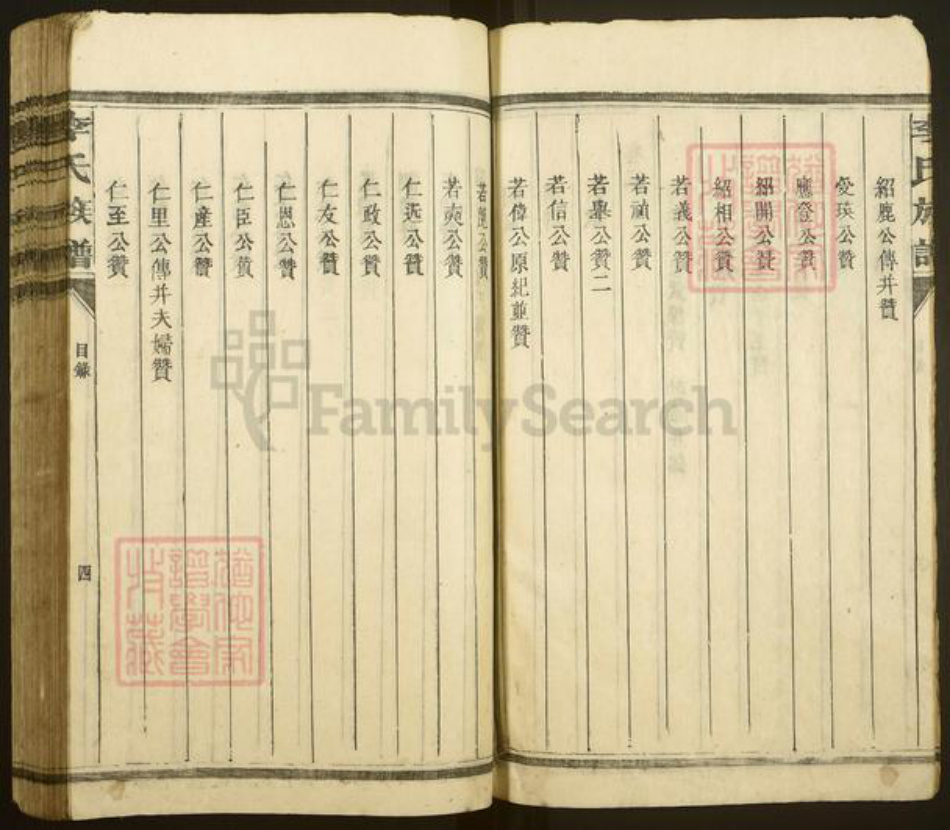 紹鹿公傳并贊
愛瑛公贊
應登公贊
紹開公贊
紹相公贊
若義公贊
若禎公贊
若舉公贊二
若信公贊
若偉公原紀並贊
若　公贊
若　公贊
仁远公贊
仁政公贊
仁友公贊
仁恩公贊
仁臣公贊
仁產公贊
仁里公傳并夫婦贊
仁至公贊
李氏族譜
目錄
四
FamilySearch